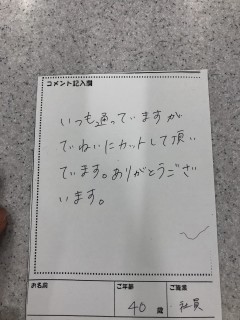 コメント記入欄
いつも通っていますが
でねいにカットして頂い
ています。ありがとうござ
います。
お名前
ご年齢
40 歳
ご職業
社員